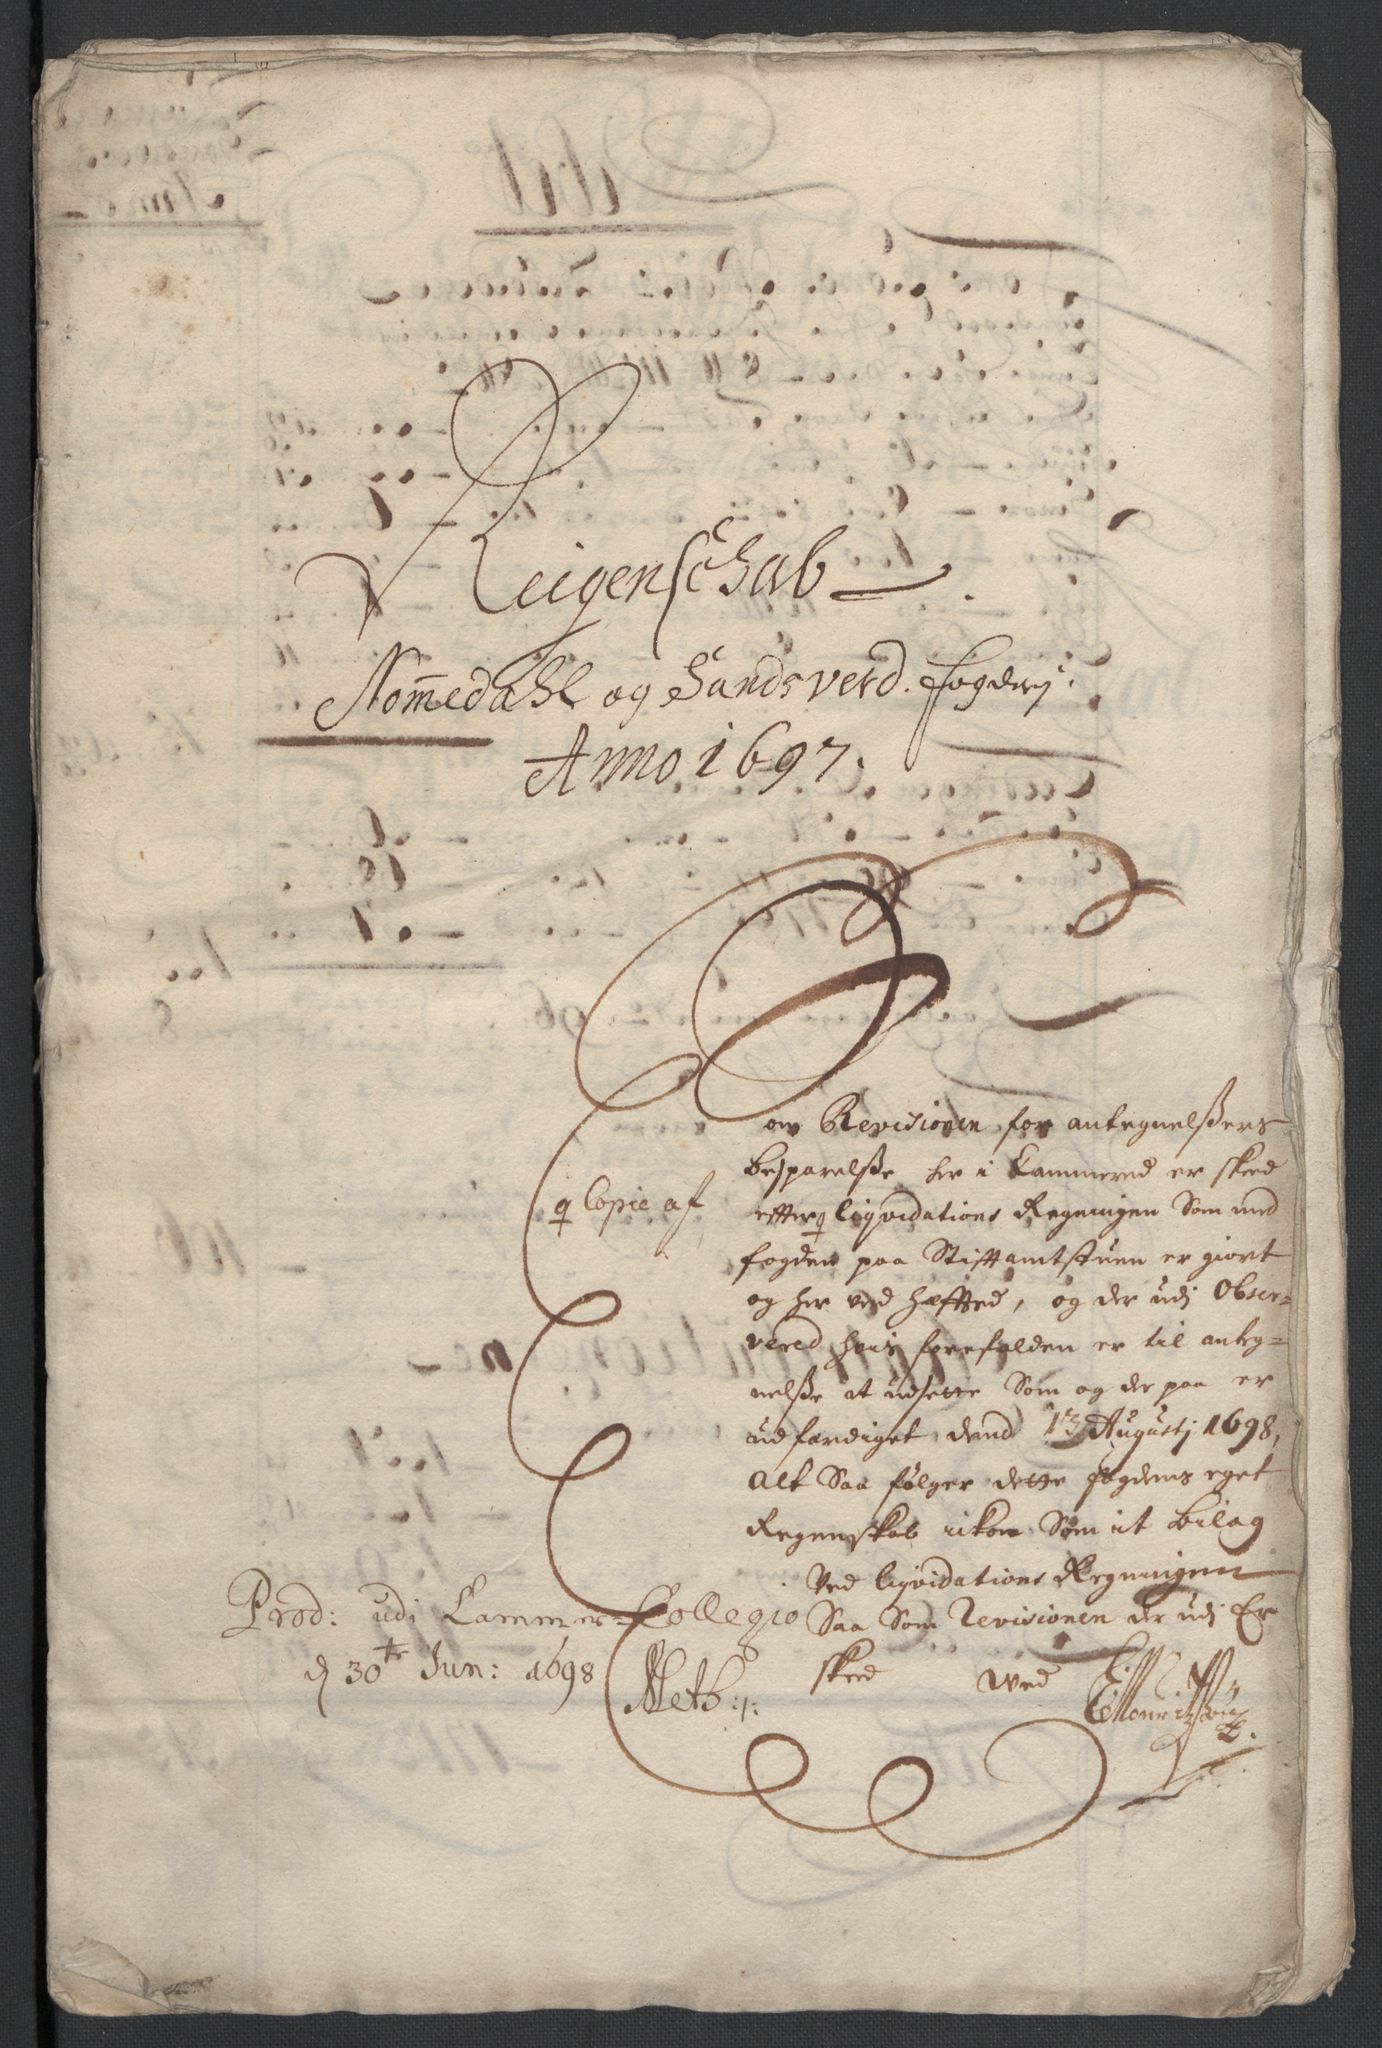 Reigenschab
Nom̄edahl og Sandsverd. fogderj.
Anno 1697.
Som Revisionen for antegnelßers
besparelße her i Cammered er skeed
efter ꝗ liqvidations Regningen Som med
ꝗ Copie af
fogden paa Stiftamtstuen er giort
og her ved hæfted, og der udj Obser-
vered hvis forefalden er til anteg-
nelße at udsette Som og der paa er
udfærdiget dend 13 Augustj 1698,
Alt Saa følger dette fogdens eget
Regenskab ickon Som it Bilag
Ved liqvidations Regningen
Saa Som Revisionen der udj Er
skeed ved
Prod: udi Cammer-Collegio
d 30te Jun: 1698